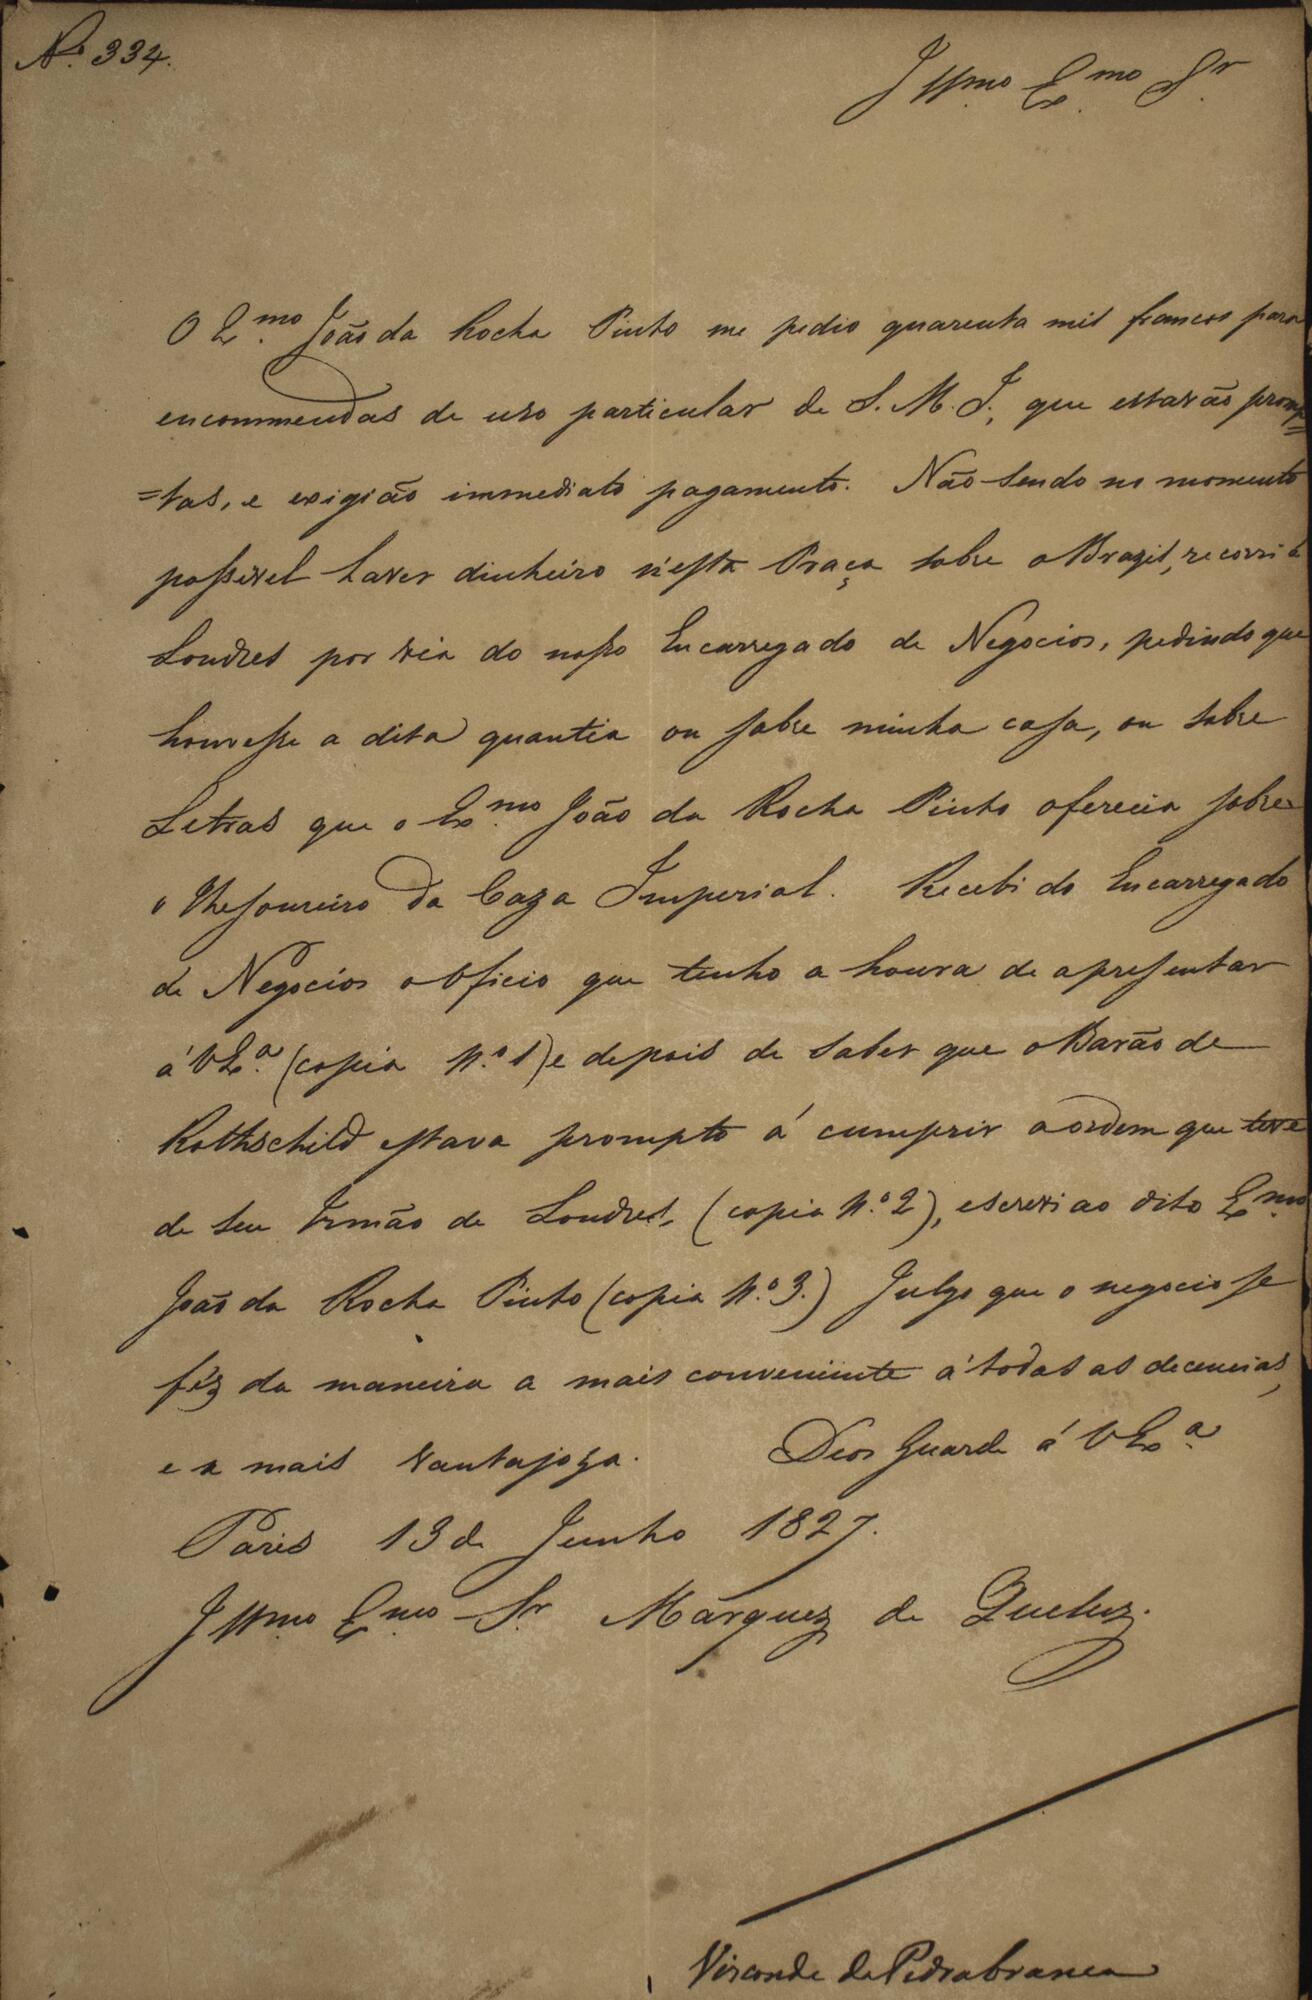 N.º 334.
Illmo. Exmo. Sr.
O Exmo. João da Rocha Pinto me pedio quarenta mil francos para
encommendas de uso particular de S. M. I., que estavão promp=
=tas, e exigião immediato pagamento. Não sendo no momento
possivel haver dinheiro n'esta Praça sobre o Brazil, recorri á
Londres por via do nosso Encarregado de Negocios, pedindo que
houvesse a dita quantia ou sobre minha casa, ou sobre
Letras que o Exmo. João da Rocha Pinto oferecia sobre
o Thesoureiro da Caza Imperial. Recebi do Encarregado
de Negocios o Oficio que tenho a honra de apresentar
á V Exa. (copia N.º 1) e depois de saber que o Barão de
Rothschild estava prompto á cumprir a ordem que teve
de seu Irmão de Londres, (copia N.º 2), escrevi ao dito Exmo.
João da Rocha Pinto (copia N.º 3.) Julgo que o negocio se
féz da maneira a mais conveniente á todas as decencias,
e a mais vantajoza. Deos Guarde á V Exa.
Paris 13 de Junho 1827.
Illmo. Exmo. Sr. Marquez de Queluz.
Visconde da Pedrabranca